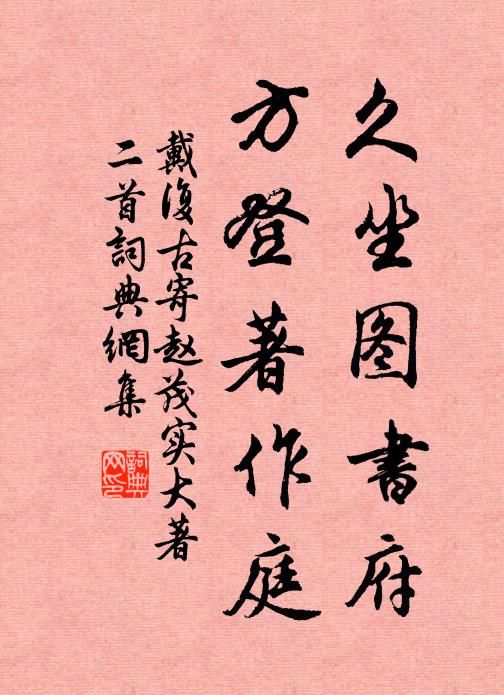 久坐图書府
方登著作庭
戴復古寄赵茂实大著
二首詞典網集
詞典网印